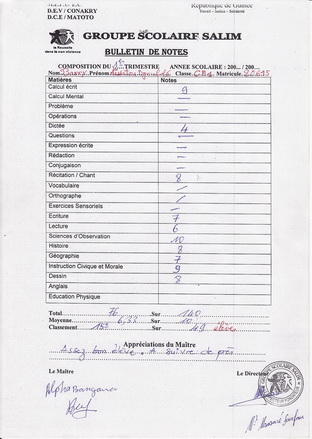 République de Guinée
D.E.V / CONAKRY
Travail - Justice - Solidarité
D.C.E / MATOTO
GROUPE SCOLAIRE SALIM
BULLETIN DE NOTES
COMPOSITION DU 1er TRIMESTRE ANNEE SCOLAIRE : 200... / 200...
Nom Barry Prénom Classe Matricule 20615
Matières Notes
Calcul écrit 9
Calcul Mental —
Problème —
Opérations —
Dictée 4
Questions —
Expression écrite —
Rédaction —
Conjugaison —
Récitation / Chant 8
Vocabulaire /
Orthographe /
Exercices Sensoriels —
Ecriture 7
Lecture 6
Sciences d'Observation 10
Histoire 8
Géographie 7
Instruction Civique et Morale 9
Dessin 8
Anglais
Education Physique
Total 76 Sur 140
Moyenne Sur 10
Classement 15è Sur 49 élèves
Appréciations du Maître
Assez bon élève. A suivre de près
Le Maître Le Directeur
Alpha Bangoura